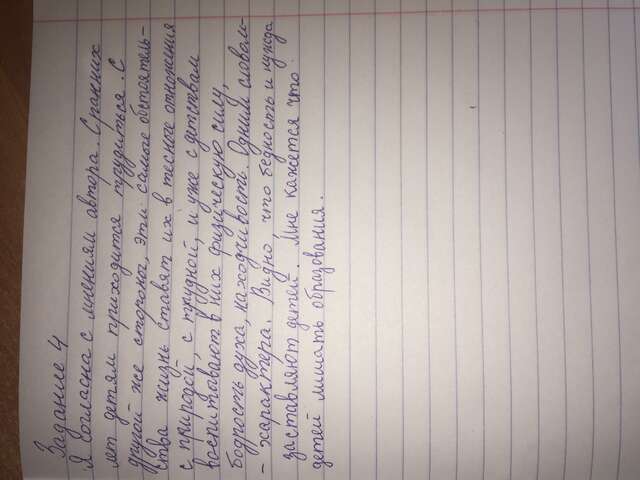 Задание 4
Я согласна с мнениям автора. С ранних
лет детям приходится трудиться. С
другой же стороны, эти самые обстоятель-
ства жизнь ставят их в тесные отношения
с природой, с трудной, и уже с детствам
воспитывают в них физическую силу,
бодрость духа, находчивость. Одним словам-
- характера. Видно, что бедность и нужда
заставляют детей. Мне кажется что
детей лишать образования.